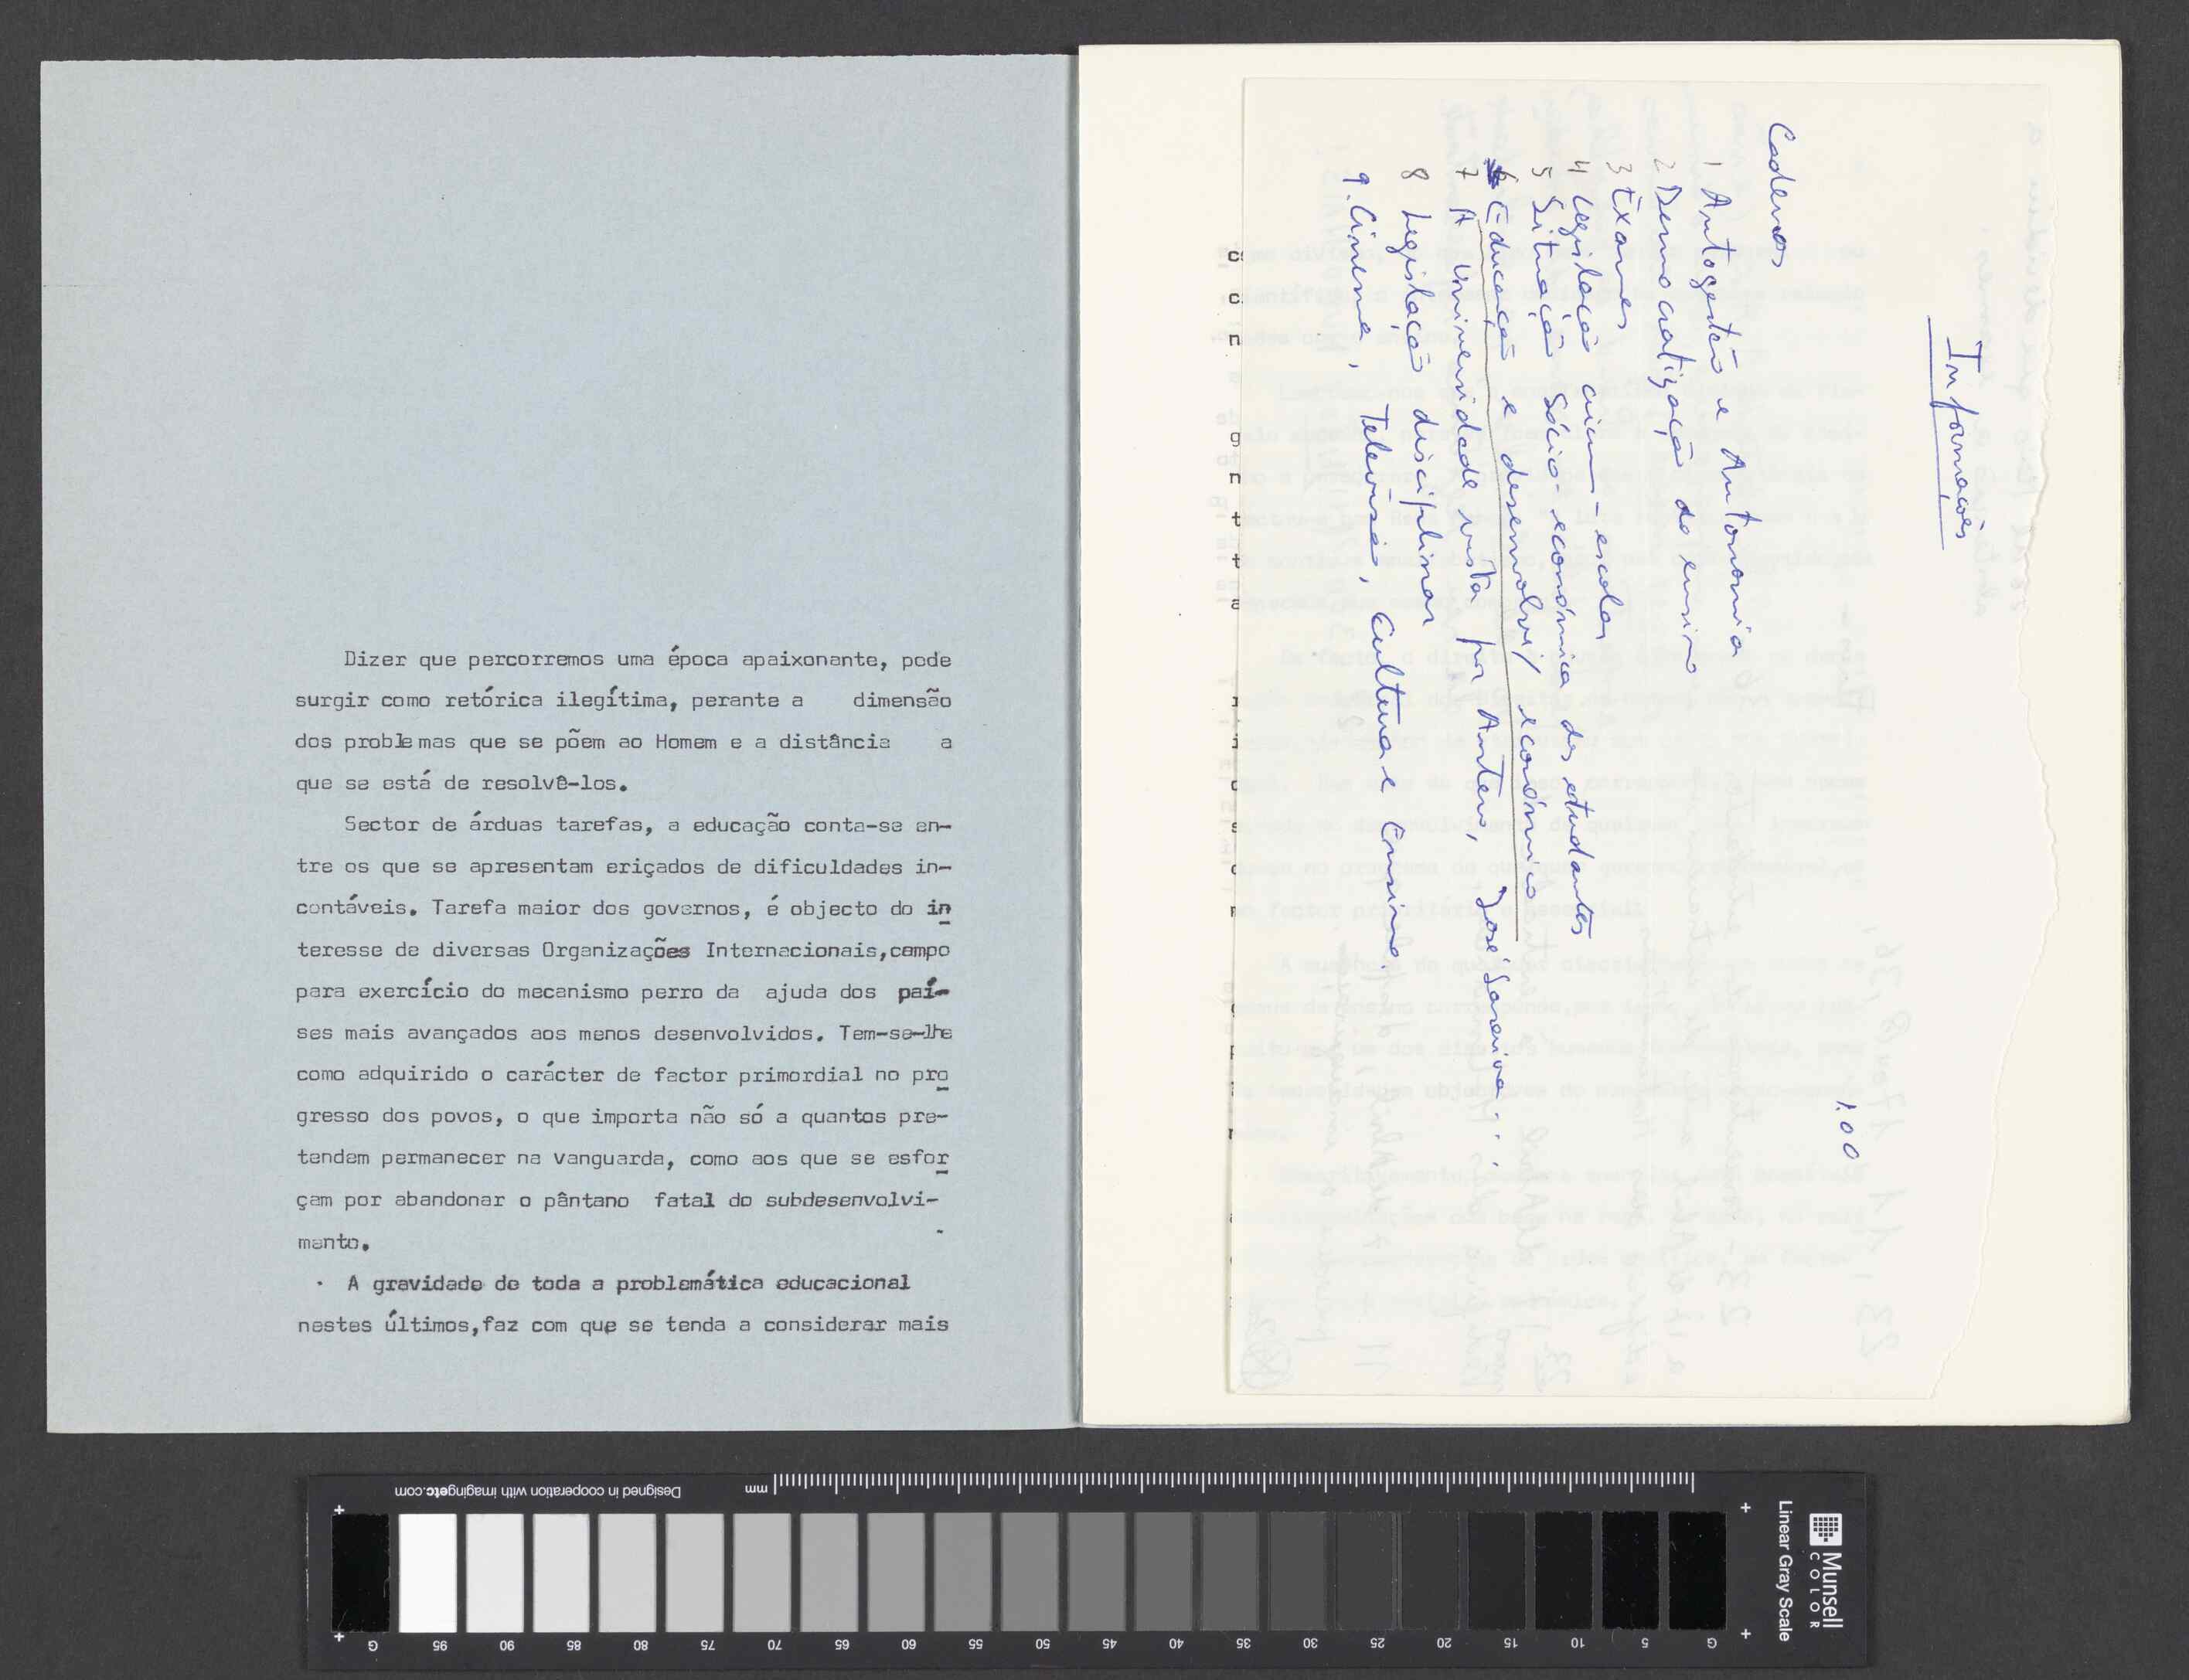 Dizer que percorremos uma época apaixonante, pode
surgir como retórica ilegítima, perante a dimensão
dos problemas que se põem ao Homem e a distância a
que se está de resolvê-los.
Sector de árduas tarefas, a educação conta-se en-
tre os que se apresentam eriçados de dificuldades in-
contáveis. Tarefa maior dos governos, é objecto do in
teresse de diversas Organizações Internacionais,campo
para exercício do mecanismo perro da ajuda dos paí-
ses mais avançados aos menos desenvolvidos. Tem-se-lhe
como adquirido o carácter de factor primordial no pro
gresso dos povos, o que importa não só a quantos pre-
tendem permanecer na vanguarda, como aos que se esfor
çam por abandonar o pântano fatal do subdesenvolvi-
mento.
A gravidade de toda a problemática educacional
nestes últimos,faz com que se tenda a considerar mais
Informações
1.00
Cadernos
1 Autogestão e Autonomia
2 Democratização do ensino
3 Exames
4 Legislação circum-escolar
5 Situação sócio-económica dos estudantes
6 Educação e desenvolvi/ económico
7 A Universidade vista por Antero, José Sareiva...
8 Legislação disciplinar
9. Cinema, Televisão, Cultura e Ensino.
Designed in cooperation with imagingetc.com
mm
Munsell
COLOR
Linear Gray Scale
G 95 90 85 80 75 70 65 60 55 50 45 40 35 30 25 20 15 10 5 G